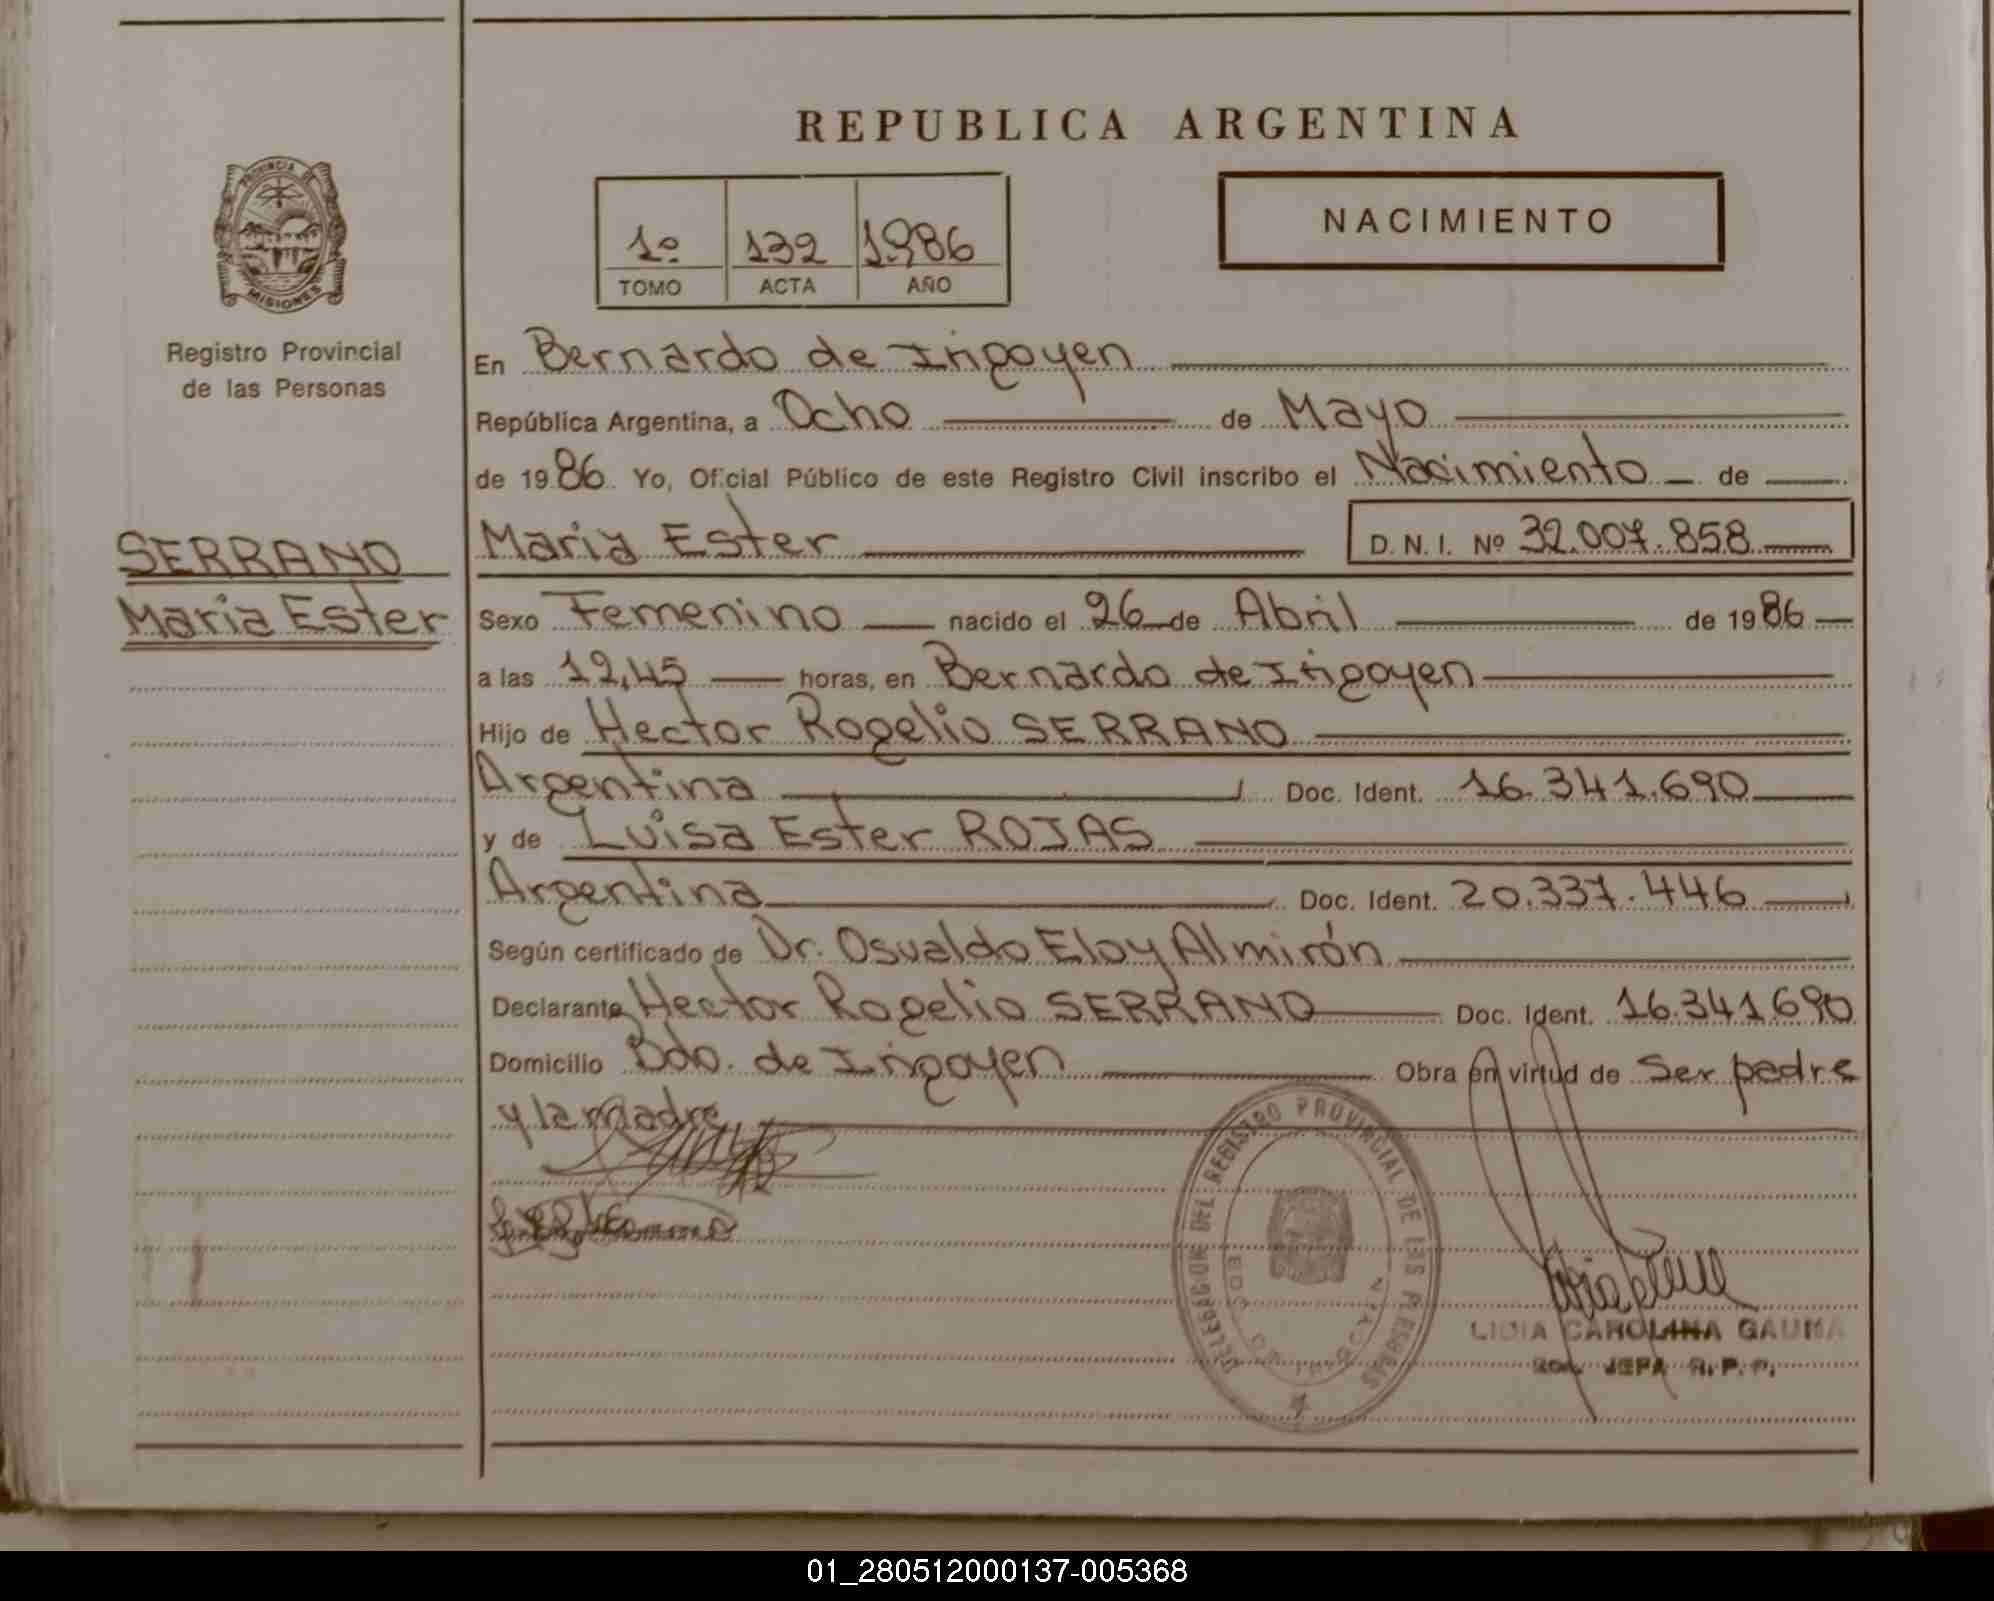 REPUBLICA ARGENTINA
PROVINCIA DE
MISIONES
Registro Provincial
de las Personas
1º 132 1986
TOMO ACTA AÑO
NACIMIENTO
En Bernardo de Irigoyen
República Argentina, a Ocho de Mayo
de 1986 Yo, Oficial Público de este Registro Civil inscribo el Nacimiento de
SERRANO
Maria Ester
Maria Ester D.N.I. Nº 32.007.858
Sexo Femenino nacido el 26 de Abril de 1986
a las 12,45 horas, en Bernardo de Irigoyen
Hijo de Hector Rogelio SERRANO
Argentina Doc. Ident. 16.341.690
y de Luisa Ester ROJAS
Argentina Doc. Ident. 20.337.446
Según certificado de Dr. Osvaldo Eloy Almirón
Declarante Hector Rogelio SERRANO Doc. Ident. 16.341.690
Domicilio Bdo. de Irigoyen Obra en virtud de Ser padre
y la madre
DELEGACION DEL REGISTRO PROVINCIAL DE LAS PERSONAS
BDO. DE IRIGOYEN
LIDIA CAROLINA GAUNA
JEFA R.P.P.
01_280512000137-005368